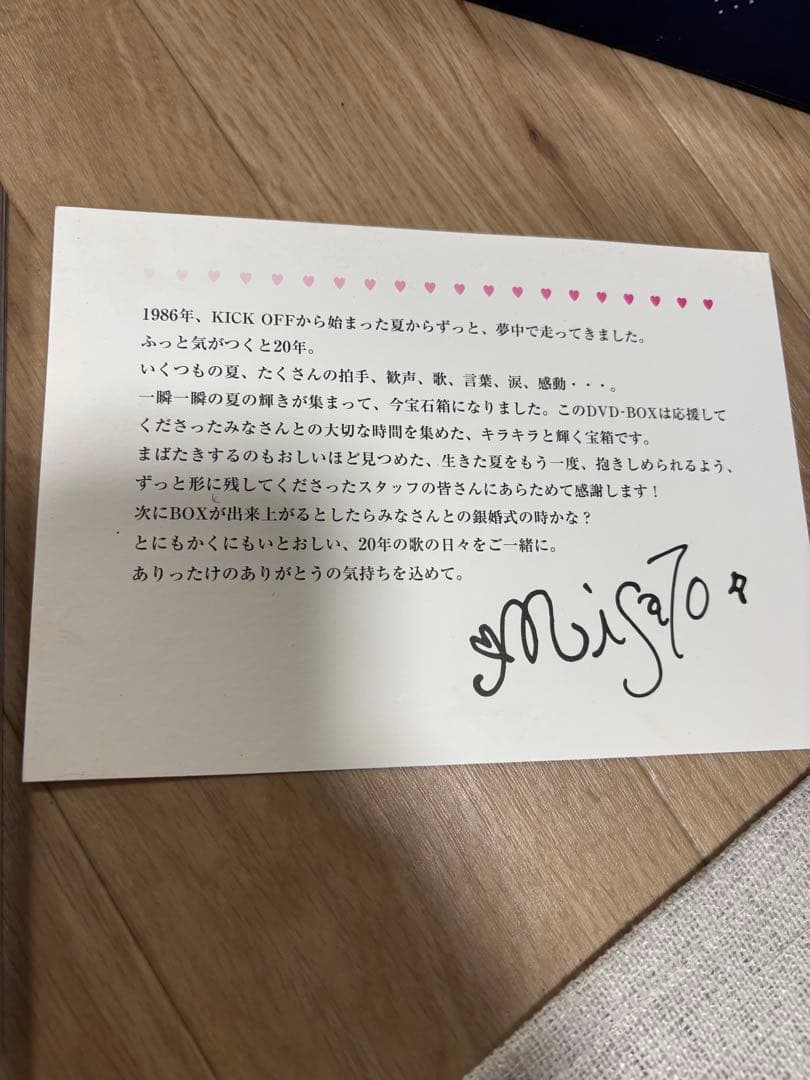 1986年、KICK OFFから始まった夏からずっと、夢中で走ってきました。
ふっと気がつくと20年。
いくつもの夏、たくさんの拍手、歓声、歌、言葉、涙、感動・・・。
一瞬一瞬の夏の輝きが集まって、今宝石箱になりました。このDVD-BOXは応援して
くださったみなさんとの大切な時間を集めた、キラキラと輝く宝箱です。
まばたきするのもおしいほど見つめた、生きた夏をもう一度、抱きしめられるよう、
ずっと形に残してくださったスタッフの皆さんにあらためて感謝します！
次にBOXが出来上がるとしたらみなさんとの銀婚式の時かな？
とにもかくにもいとおしい、20年の歌の日々をご一緒に。
ありったけのありがとうの気持ちを込めて。
Misato